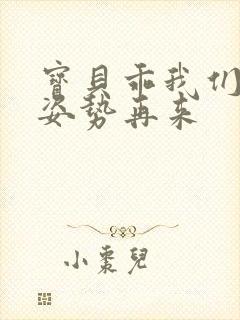 寶貝乖我们
姿勢再来
小棗兒